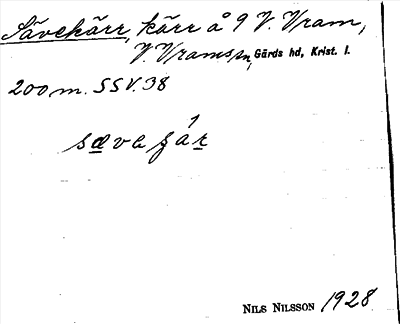 Sävekärr, kärr å 9 V. Vram,
V. Vrams sn, Gärds hd, Krist. l.
200 m. SSV. 38
NILS NILSSON 1928